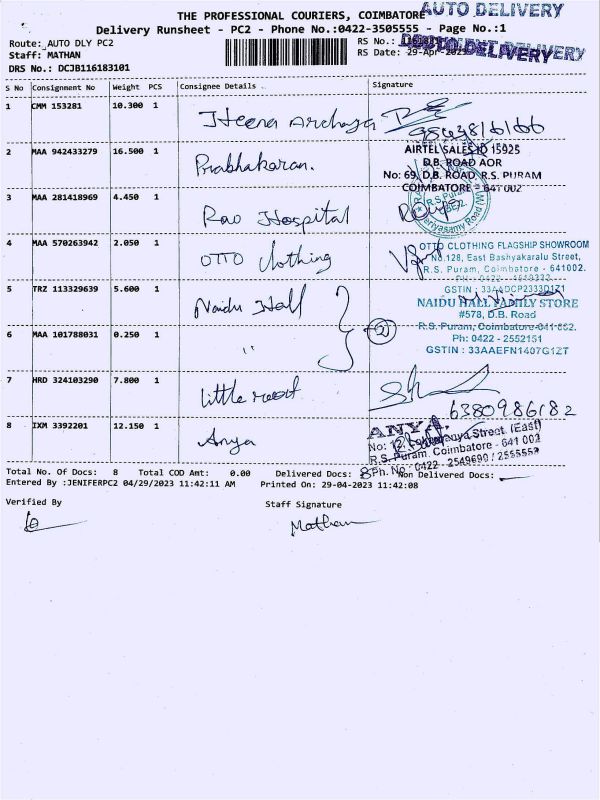 THE PROFESSIONAL COURIERS, COIMBATORE
AUTO DELIVERY
Delivery Runsheet - PC2 - Phone No.:0422-3505555 - Page No.:1
Route: AUTO DLY PC2
RS No.:
AUTO DELIVERY
Staff: MATHAN
RS Date: 29-Apr-2023
DRS No.: DCJB116183101
S No Consignment No Weight PCS Consignee Details Signature
1 CMM 153281 10.300 1 Heena Archaya
2 MAA 942433279 16.500 1 Prabhakaran.
AIRTEL SALES ID 15925
D.B. ROAD AOR
No: 69, D.B. ROAD, R.S. PURAM
COIMBATORE - 641 002
3 MAA 281418969 4.450 1 Rao Hospital
4 MAA 570263942 2.050 1 OTTO Clothing
OTTO CLOTHING FLAGSHIP SHOWROOM
No.128, East Bashyakaralu Street,
R.S. Puram, Coimbatore - 641002.
5 TRZ 113329639 5.600 1 Naidu Hall
NAIDU HALL FAMILY STORE
#578, D.B. Road
R.S. Puram, Coimbatore-641 002.
6 MAA 101788031 0.250 1 " 2
Ph: 0422 - 2552151
GSTIN : 33AAEFN1407G1ZT
7 HRD 324103290 7.800 1
6380986182
8 IXM 3392201 12.150 1 Anya
ANYA
R.S. Puram, Coimbatore - 641 002
Ph. No: 0422 - 2549690 / 2555552
Total No. Of Docs: 8 Total COD Amt: 0.00 Delivered Docs: 8 Non Delivered Docs:
Entered By :JENIFERPC2 04/29/2023 11:42:11 AM Printed On: 29-04-2023 11:42:08
Verified By Staff Signature
Mathan